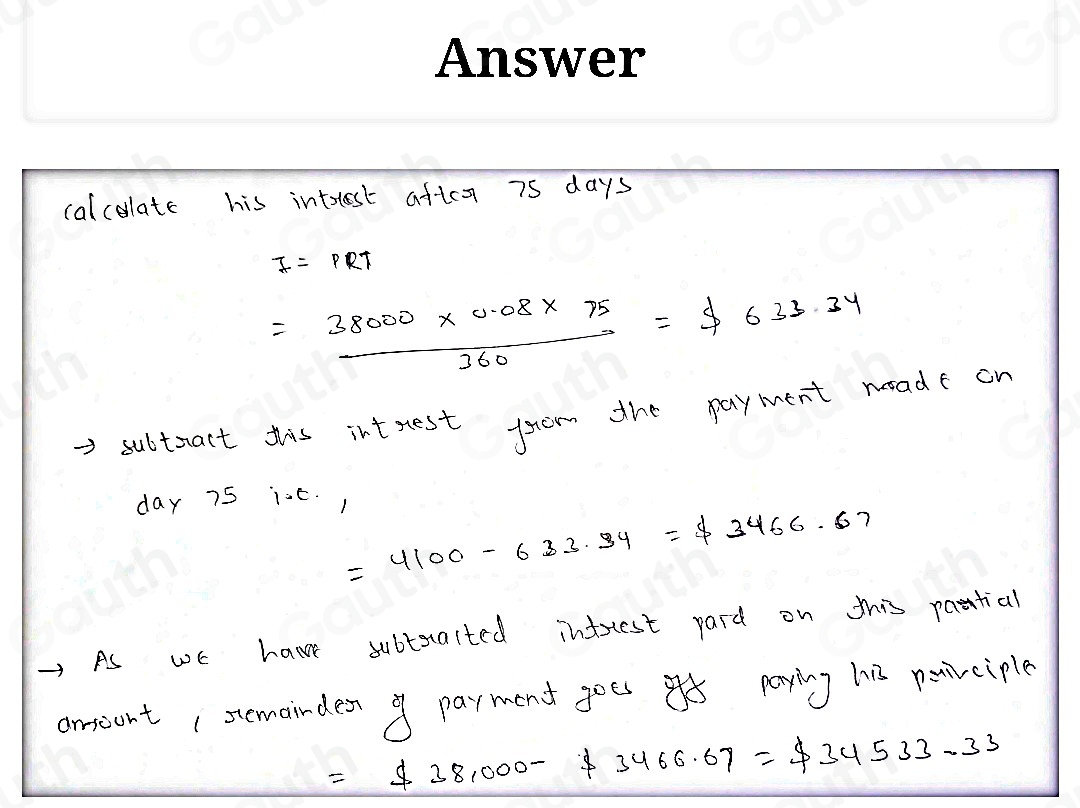 Answer
calculate his intrest after 75 days
I = PRT
= 38000 × 0.08 × 75 / 360 = $ 633.34
→ subtract this intrest from the payment made on
day 75 i.e. ,
= 4100 - 633.34 = $ 3466.67
→ As we have subtracted intrest paid on this partial
amount , remainder of payment goes off paying his principle
= $ 38,000 - $ 3466.67 = $ 34533.33